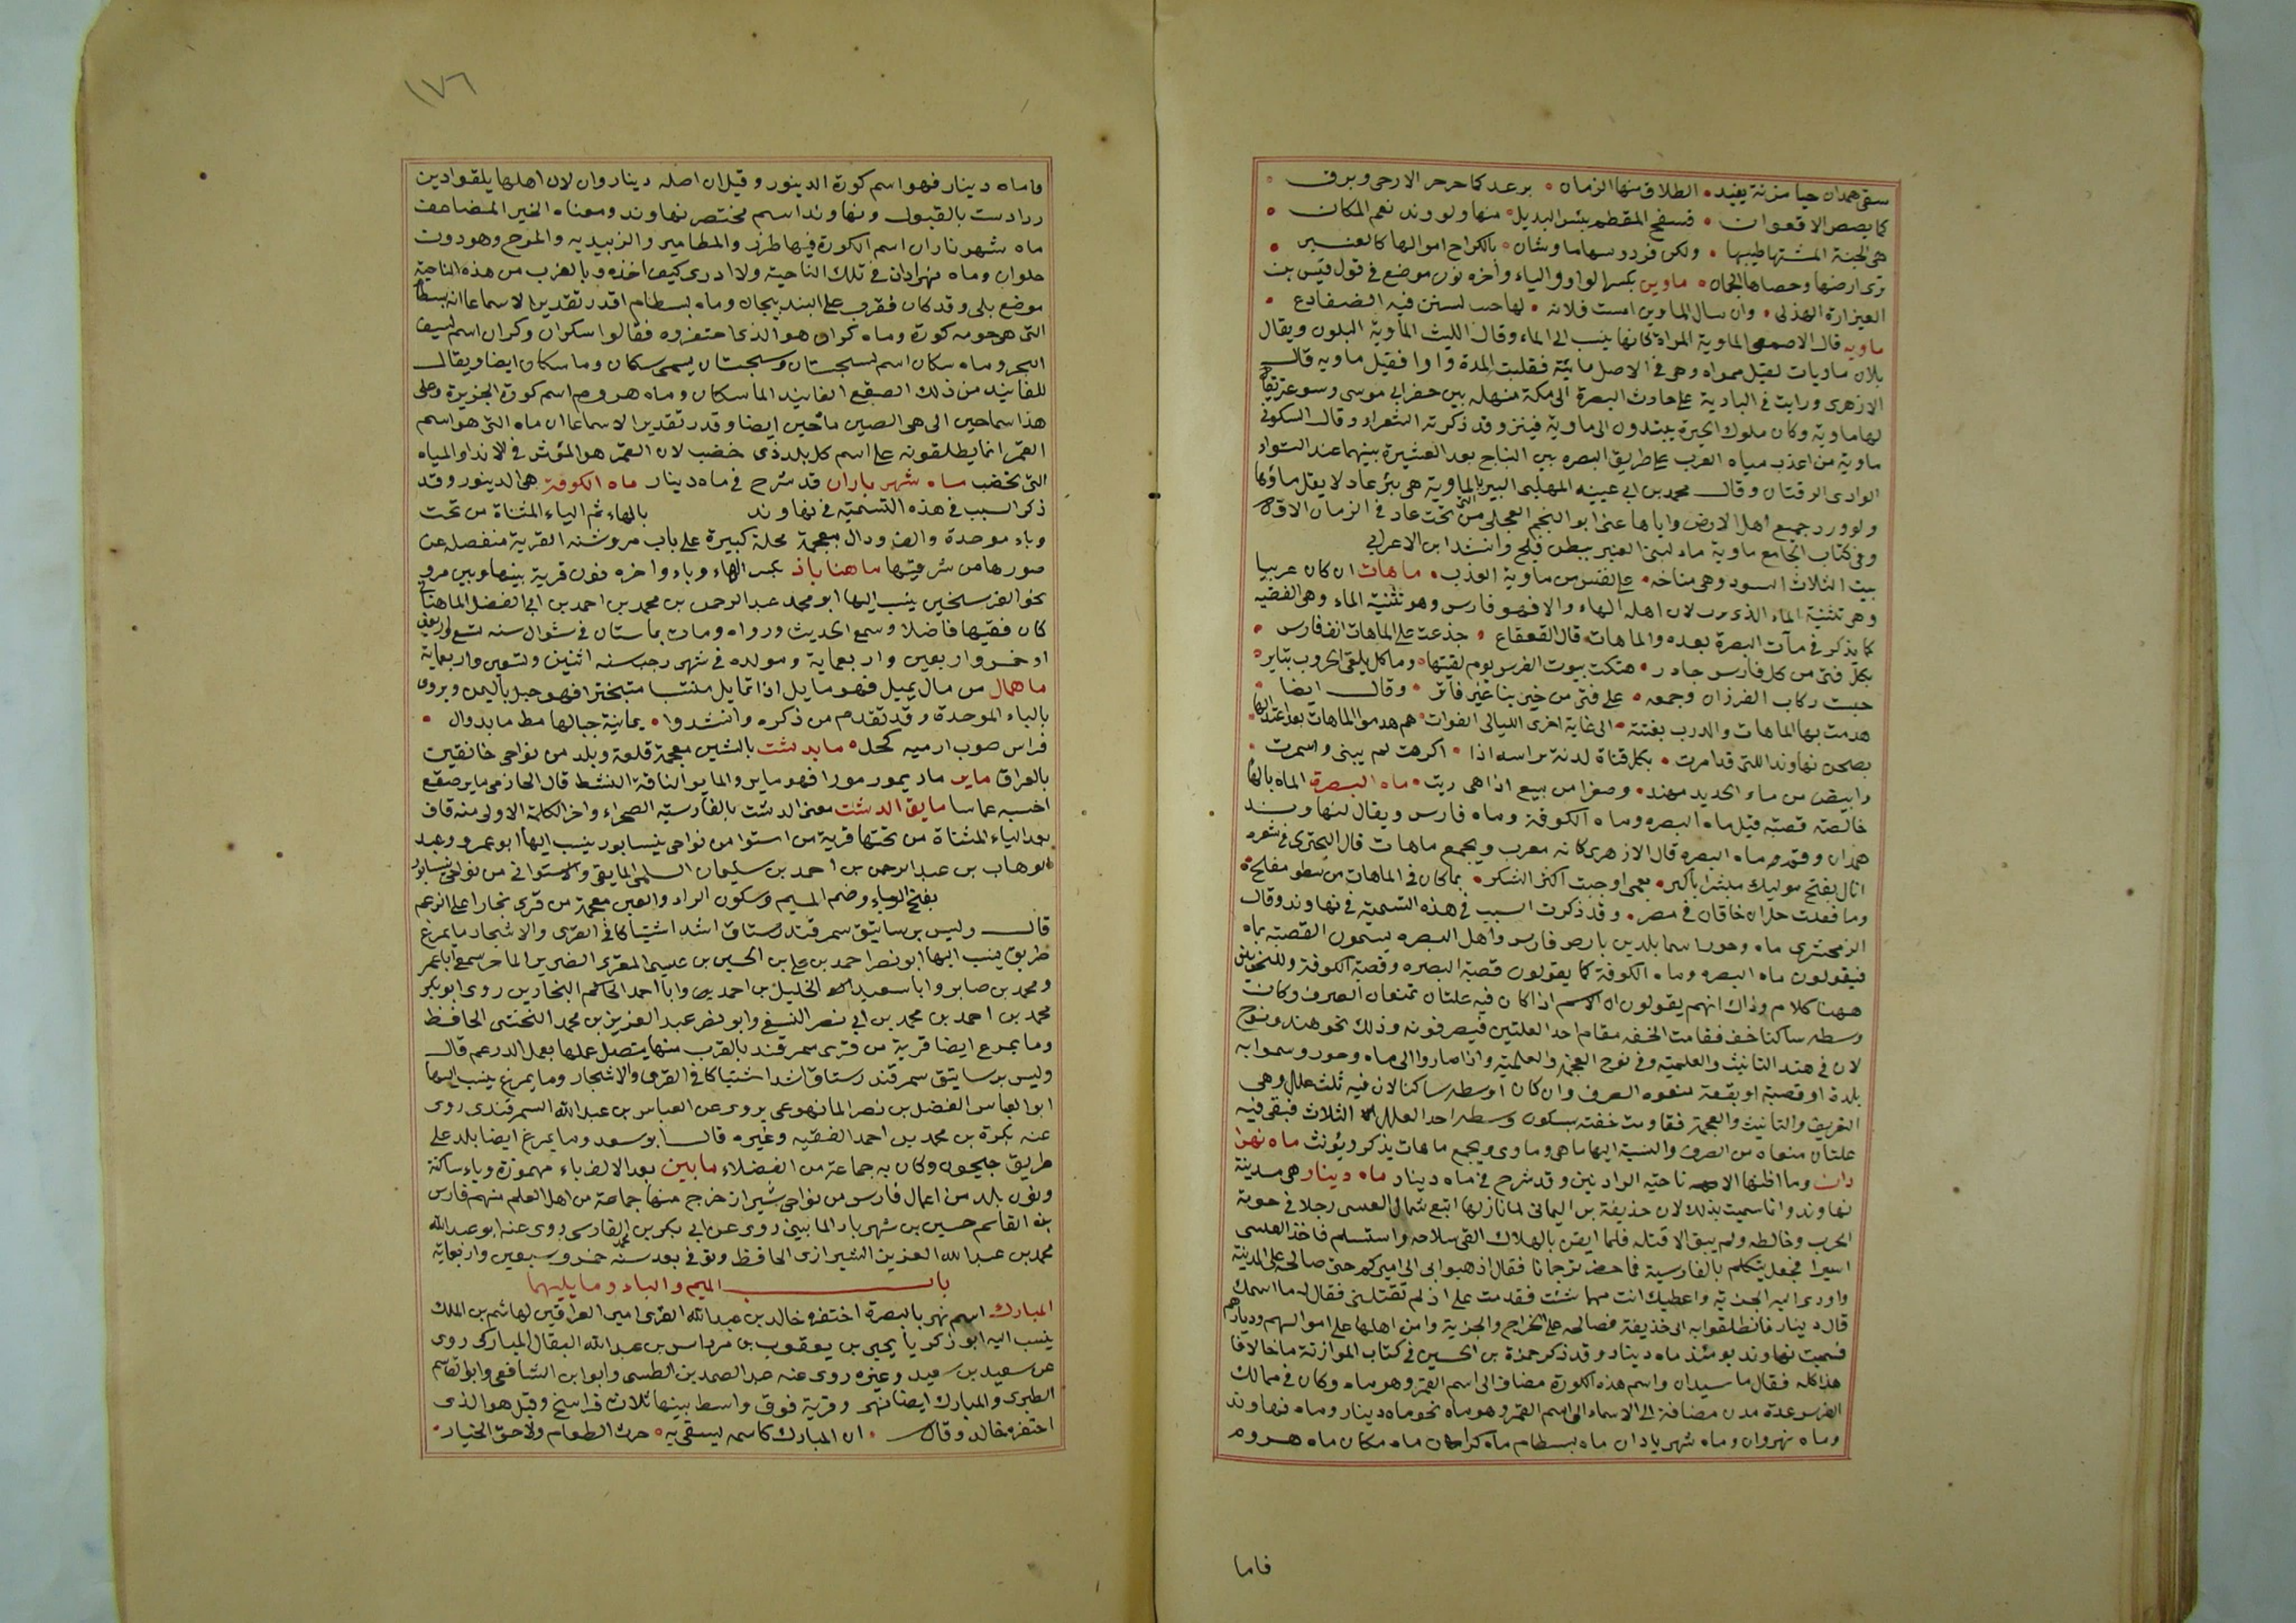 سقى همدان حيا مزنة يفيد • الطلاق منها الزمان • برعد كما جرجر الارحى وبرق •
كما بصبص الافعوان • فسفح المقطم بئس البديل • منها ولوند نعم المكان •
هى الجنة المشتها طيبها • ولكن فردوسها ماوشان • بالكراح امواله كالعنبر •
ترى ارضها وحصاها الجمان • ماوين بكسر الواو والياء واخره نون موضع فى قول قيس بن
العيزارة الهذلى • وان سال الماوين امست فلانه • لها حبب لستن فيه الضفادع •
ماويه قال الاصمعى الماوية المراة كانها ينسب الى الماء وقال الليث الماوية البلون ويقال
بلان ماويات لقيل ممواه وهى فى الاصل مائية فقلبت المدة واوا فقيل ماويه قال
الازهرى ورايت فى البادية على جادت البصرة الى مكة منهله بين حفر ابى موسى وسوعة يقال
لها ماوية وكان ملوك الحيرة يبتدون الى ماوية فينزو قد ذكرته الشعراء وقال السكونى
ماوية من اعذب مياه العرب على طريق البصره بين النباج بعد العشيرة بينهما عند التواء
الوادى الرقتان وقال محمد بن ابى عيينه المهلبى البير بالماوية هى بئر عاد لا يقل ماؤها
ولو ورد جميع اهل الارض واياها عنى ابو النجم العجلى من تحت عاد فى الزمان الاقره
وفى كتاب الجامع ماوية ماء لبنى العنبر ببطن فيلج وانشد ابن الاعرابى
بيت الثلاث السود وهى مناخه • على نفس من ماوية العذب • ماهات ان كان عربيا
وهر تثنية الماء الذى يشرب لان اصله الهاء والافهو فارس وهو تثنية الماء وهى القصبة
كما يذكر فى مآت البصرة بعده والماهات قال القعقاع • جدعت على الماهات انف فارس •
بكل فتى من كل فارس جادر • هتكت بيوت الفرس يوم لقيتها • وما كل يلقى الحروب بثاير •
حبست ركاب الفرزان وجمعه • على فتر من خيرنا غير فاتر • وقال ايضا •
هدمت بها الماهات والدرب بغتة • الى غاية اخرى الليالى الفوات • هم هدموا الماهات بعد اعتدالها •
بصحن نهاوند اللتى قد امرت • بكل قناة لدنة براسه اذا • اكرهت لم يبنى واسمرت •
وابيض من ماء الحديد مهند • وصفرا من بيع اذا هى ريت • ماه البصرة الماه بالهاء
خالصة قصبة قيل ماه البصره وماه الكوفة وماه فارس ويقال لنهاوند
همدان وقم ماه البصره قال الازهرى كانه معرب ويجمع ماهات قال البحترى فى شعره
اتال بفتح موليك مبشرا باكبر • نعمى اوجبت اكثر الشكر • بما كان فى الماهات من سطو مفلح •
وما فعلت خيل ابن خاقان فى مصر • وقد ذكرت السبب فى هذه التسمية فى نهاوند وقال
الزمحشرى ماه وجور اسما بلدين بارض فارس واهل البصره يسمون القصبة بماه
فيقولون ماه البصره وماه الكوفة كما يقولون قصبة البصره وقصبة الكوفة وللنحويين
ههنا كلام وذاك انهم يقولون ان الاسم اذا كان فيه علتان تمنعان الصرف وكان
وسطه ساكنا خف فقامت الخفه مقام احد العلتين فيصرفونه وذلك نحو هند ونوح
لان فى هند التانيث والعلمية وفى نوح العجمة والعلمية واذا صاروا الى ماه وجور وسموا به
بلدة او قصبة او بقعة منعوه الصرف وان كان اوسطه ساكنا لان فيه ثلث علل وهى
التعريف والتانيث والعجمة فقاومت خفته بسكون وسطه احد العلل الثلاث فبقى فيه
علتان منعاه من الصرف والنسبة اليها ماهى وماوى ويجمع ماهات يذكر ويؤنث ماه نهرا
دان وما اظنها الا ناحية الرادنين وقد شرح فى ماه دينار ماه دينار هى مدينة
نهاوند وانما سميت بذلك لان حذيفة بن اليمانى لما نازلها اتبع شماك العسى رجلا فى حومة
الحرب وخالطه ولم يبق الا قتله فلما ايقن بالهلاك القى سلاحه واستسلم فاخذ العسى
اسيرا فجعل يتكلم بالفارسية فاحضر ترجمانا فقال اذهبوا بى الى اميركم حتى صالحه على المدينة
واودى اليه الجزية واعطيك انت مهما شئت فقد مت على اذ لم تقتلنى فقال له ما اسمك
قال دينار فانطلقوا به الى حذيفة فصالحه على الخراج والجزية وامن اهلها على اموالهم وديارهم
فسميت نهاوند يومئذ ماه دينار وقد ذكر حمزة بن الحسين فى كتاب الموازنة ما خالافا
هذا كله فقال ماسبذان واسم هذه الكورة مضاف الى اسم القمر وهو ماه وكان فى ممالك
الفرس عدة مدن مضافة الى الاسماء الى اسم القمر وهو ماه نحو ماه دينار وماه نهاوند
وماه نهروان وماه شهرياران ماه بسطام ماه كران ماه مكان ماه هروم
فاما
١٧٦
فاماه دينار فهو اسم كورة الدينور وقيل ان اصله ديناروان لان اهلها يلقوادين
زرادست بالقبول ونهاوند اسم مختصر نهاوند ومعناه الخير المضاعف
ماه شهرياران اسم الكورة فيها طزر والمطامير والزبيديه والمرح وهو دون
حلوان وماه نهرادان فى تلك الناحية ولا ادرى كيف اخذه وبالقرب من هذه الناحية
موضع بلى وقد كان فقرب على البندنيجان وماه بسطام اقدر تقديرا لا سماعا انه بسطام
التى هو حومه كورة وماه كران هو الذى احتفروه فقالوا سكران وكران اسم لسيف
البحر وماه سكان اسم لسجستان وسجستان يسمى سكان وماسكان ايضا ويقال
للفانيد من ذلك الصقع الفانيد الماسكان وماه هروم اسم كورة الجزيرة وعلى
هذا سماحين الى هى الصين ماحين ايضا وقدر تقديرا لا سماعا ان ماه التى هو اسم
القمر انما يطلقونه على اسم كل بلد ذى خضب لان القمر هو المؤثر فى الانداء والمياه
التى تخضب ماه شهر ياران قد شرح فى ماه دينار ماه الكوفة هى الدينور وقد
ذكر السبب فى هذه التسمية فى نهاوند بالهاء ثم الياء المثناة من تحت
وباء موحدة والف ودال معجمة محلة كبيرة على باب مرو شنه القرية منفصلة عن
سورها من شرقيها ماهناباذ بكسر الهاء وباء واخره نون قرية بينها وبين مرو
نحو الفرسخين ينسب اليها ابو محمد عبد الرحمن بن محمد بن احمد بن ابى الفضل الماهنانى
كان فقيها فاضلا وسمع الحديث ورواه ومات بماستان فى شوال سنه تسع واربعين
او خمس واربعين واربعماية ومولده فى شهر رجب سنه اثنين وتسعين واربعماية
ماهمال من مال يميل فهو مايل اذا تمايل منتسبا متبخترا فهو جبل باليمن ويروى
بالباء الموحدة وقد تقدم من ذكره وانشدوا • يمانية جبالها مط مابدوال •
قراس صوب ارميه كحل • مايدشت بالشين معجمة قلعة وبلد من نواحى خانقين
بالعراق ماير مار يمور مورا فهو ماير والمايو الناقة النشط قال الحازمى ماير صقع
احسبه عماسا مايق الدشت معنى الدشت بالفارسية الصحراء واخر الكلمة الاولى منه قاف
بعد الياء المثناة من تحتها قرية من استوا من نواحى نيسابور ينسب اليها ابو عمرو وعبد
الوهاب بن عبد الرحمن بن احمد بن سليمان السلمى المايقى والاستوائى من نواحى نيسابور
بفتح الياء وضم الميم وسكون الراء والعين معجمة من قرى بخارا على الزعم
قال وليس برساتيق سمرقند رستاق اشد اشتياكا فى القرى والاشجار مايمرغ
طريق ينسب اليها ابو نصر احمد بن على بن الحسين بن عيسى المقرى الضرير الماحر سمع ابا عمر
ومحمد بن صابر وابا سعيد الخليل بن احمد وابا احمد الحاكم البخارين روى ابو بكر
محمد بن احمد بن محمد بن ابى نصر النسفى وابو نصر عبد العزيز بن محمد النخشى الحافظ
ومايمرع ايضا قرية من قرى سمرقند بالقرب منها يتصل عملها بعمل الدرعم قال
وليس برساتيق سمرقند رستاق اشد اشتياكا فى القرى والاشجار ومايمرغ ينسب اليها
ابو العباس الفضل بن نصر المايمرعى يروى عن العباس بن عبد الله السمرقندى روى
عنه بكرة بن محمد بن احمد الفقيه وغيره قال ابو سعد ومايمرغ ايضا بلد على
طريق جيحون وكان به جماعة من الفضلاء مابين بعد الالف ياء مهموزة وياء ساكنة
ونون بلد من اعمال فارس من نواحى شيراز خرج منها جماعة من اهل العلم منهم فارس
بن القاسم حسين بن شهريار المايينى روى عن ابى بكر بن محمد القارسى روى عنه ابو عبد الله
محمد بن عبد الله العزيز الشيرازى الحافظ وتوفى بعد سنة خمس وسبعين واربعماية
باب الميم والباء وما يليهما
المبارك اسم نهر بالبصرة احتفره خالد بن عبد الله القسرى امير العراقين لهاشم بن الملك
ينسب اليه ابو زكريا يحيى بن يعقوب بن مرداس بن عبد الله البقال المباركى روى
عن سعيد بن سعيد وغيره روى عنه عبد الصمد بن الطسى وابو ابن الشافعى وابو القاسم
الطبرى والمبارك ايضا نهر وقرية فوق واسط بينهما ثلاث فراسخ وقيل هو الذى
احتفره خالد وقال • ان المبارك كاسمه يسقى به • حرث الطعام ولاحق الخيار •